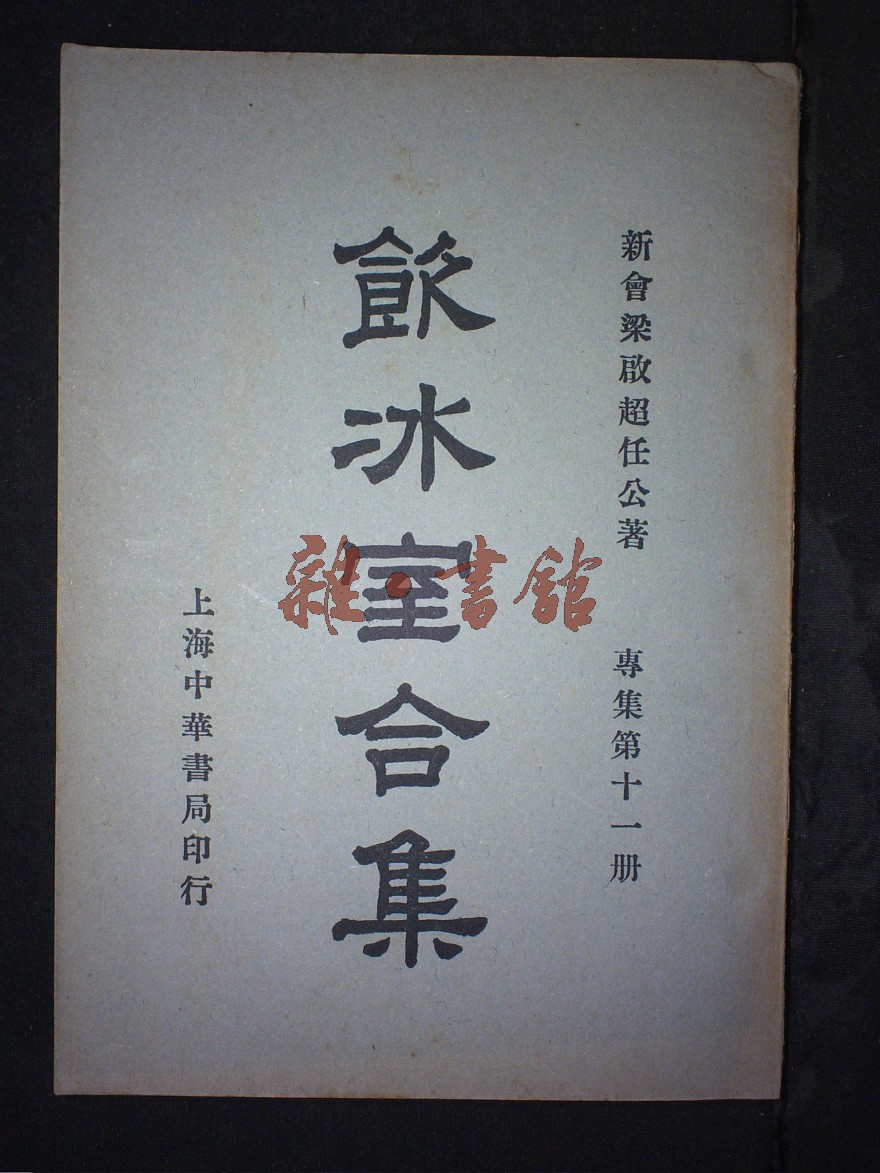 新會梁啟超任公著
專集第十一册
飲冰室合集
上海中華書局印行
雜·書館